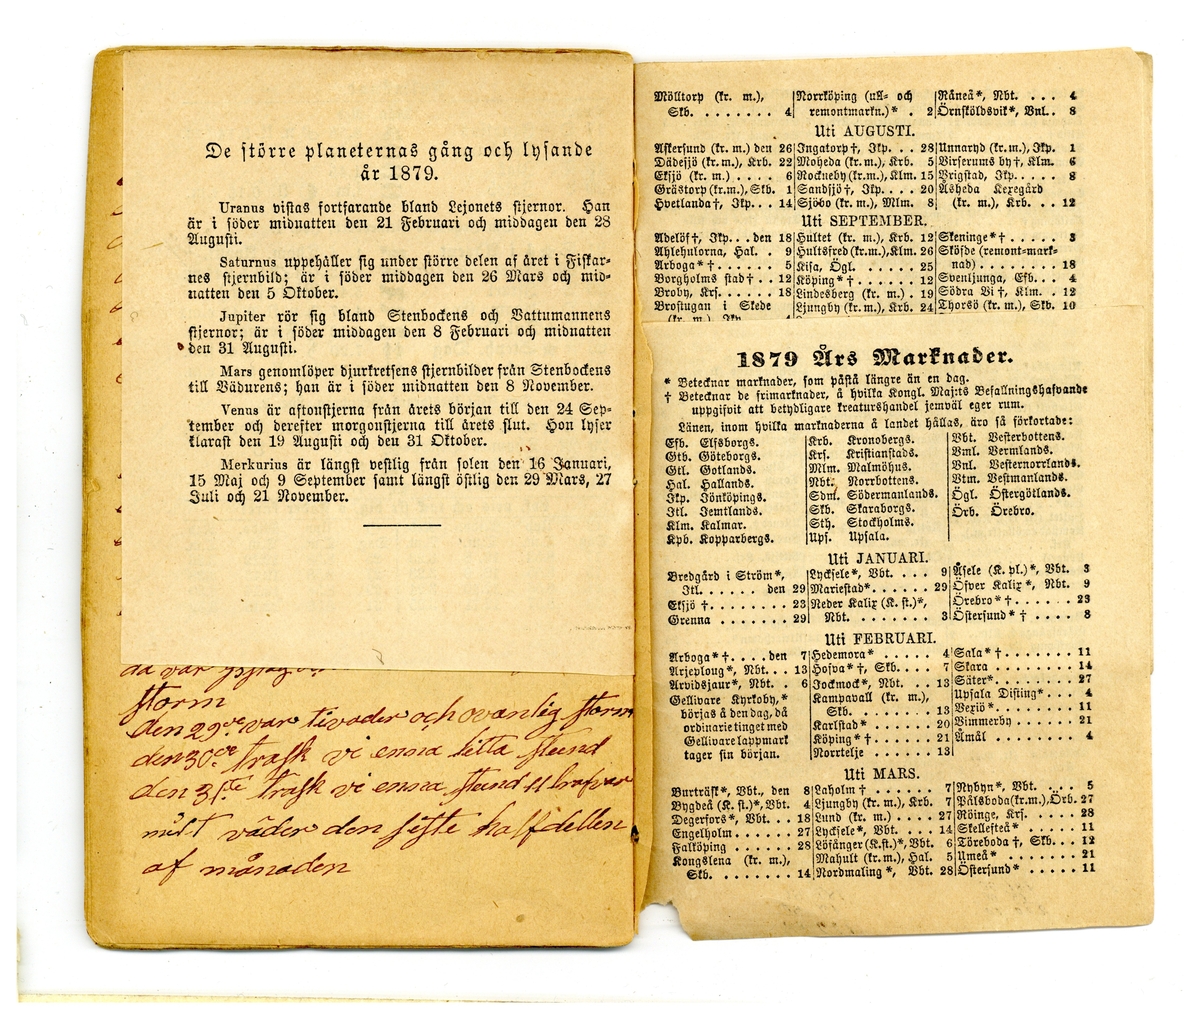 De större planeternas gång och lysande
år 1879.
Uranus vistas fortfarande bland Lejonets stjernor. Han
är i söder midnatten den 21 Februari och middagen den 28
Augusti.
Saturnus uppehåller sig under större delen af året i Fiskar-
nes stjernbild; är i söder middagen den 26 Mars och mid-
natten den 5 Oktober.
Jupiter rör sig bland Stenbockens och Vattumannens
stjernor; är i söder middagen den 8 Februari och midnatten
den 31 Augusti.
Mars genomlöper djurkretsens stjernbilder från Stenbockens
till Vädurens; han är i söder midnatten den 8 November.
Venus är aftonstjerna från årets början till den 24 Sep-
tember och derefter morgonstjerna till årets slut. Hon lyser
klarast den 19 Augusti och den 31 Oktober.
Merkurius är längst vestlig från solen den 16 Januari,
15 Maj och 9 September samt längst östlig den 29 Mars, 27
Juli och 21 November.
då var
storm
den 29de var tivader och ovanlig storm
den 30de trask vi enna litta stund
den 31ste trask vi enna stund
milt väder den siste halfdellen
af månaden
Mölltorp (kr. m.),
Skb. . . . . . . . 4
Norrköping (ull- och
remontmarkn.)* . 2
Råneå*, Nbt. . . . 4
Örnsköldsvik*, Vnl. . 8
Uti AUGUSTI.
Askersund (kr. m.) den 26
Dädesjö (kr. m.), Krb. 22
Eksjö (kr. m.) . . . . 6
Grästorp (kr. m.), Skb. 1
Hvetlanda†, Jkp. . . 14
Ingatorp†, Jkp. . . 28
Moheda (kr. m.), Krb. 5
Rockneby (kr. m.), Klm. 15
Sandsjö†, Jkp. . . . 20
Sjöbo (kr. m.), Mlm. 8
Unnaryd (kr. m.), Jkp. 1
Virserums by†, Klm. 6
Vrigstad, Jkp. . . . . 8
Åsheda Kexegård
(kr. m.), Krb. . . 12
Uti SEPTEMBER.
Adelöf†, Jkp. . . den 18
Ahlehulorna, Hal. . 9
Arboga*† . . . . . . 5
Borgholms stad† . . 12
Broby, Krs. . . . . . 18
Brostugan i Skede
(kr. m.), Jkp. . . 4
Hultet (kr. m.), Krb. 12
Hultsfred (kr. m.), Klm. 26
Kisa, Ögl. . . . . . 25
Köping*† . . . . . . 12
Lindesberg (kr. m.) . 19
Ljungby (kr. m.), Krb. 24
Skeninge*† . . . . . 3
Sköfde (remont=mark=
nad) . . . . . . . . 18
Svenljunga, Efb. . . 4
Södra Vi†, Klm. . 12
Thorsö (kr. m.), Skb. 10
1879 Års Marknader.
* Betecknar marknader, som påstå längre än en dag.
† Betecknar de frimarknader, å hvilka Kongl. Maj:ts Befallningshafvande
uppgifvit att betydligare kreaturshandel jemväl eger rum.
Länen, inom hvilka marknaderna å landet hållas, äro så förkortade:
Efb. Elfsborgs.
Gtb. Göteborgs.
Gtl. Gotlands.
Hal. Hallands.
Jkp. Jönköpings.
Jtl. Jemtlands.
Klm. Kalmar.
Kpb. Kopparbergs.
Krb. Kronobergs.
Krs. Kristianstads.
Mlm. Malmöhus.
Nbt. Norrbottens.
Sdm. Södermanlands.
Skb. Skaraborgs.
Sth. Stockholms.
Ups. Upsala.
Vbt. Vesterbottens.
Vml. Vermlands.
Vnl. Vesternorrlands.
Vtm. Vestmanlands.
Ögl. Östergötlands.
Örb. Örebro.
Uti JANUARI.
Bredgård i Ström*,
Jtl. . . . . . den 29
Eksjö † . . . . . . . . 23
Grenna . . . . . . . . 29
Lycksele*, Vbt. . . . 9
Mariestad* . . . . . . 29
Neder Kalix (K. st.)*,
Nbt. . . . . . . . 3
Åsele (K. pl.)*, Vbt. 3
Öfver Kalix*, Nbt. 9
Örebro*† . . . . . . 23
Östersund*† . . . . 8
Uti FEBRUARI.
Arboga*† . . . . den 7
Arjeploug*, Nbt. . . 13
Arvidsjaur*, Nbt. . 6
Gellivare Kyrkoby,*
börjas å den dag, då
ordinarie tinget med
Gellivare lappmark
tager sin början.
Hedemora* . . . . . 4
Hofva*†, Skb. . . . 7
Jockmock*, Nbt. . . 13
Kampavall (kr. m.),
Skb. . . . . . . . 13
Karlstad* . . . . . . 20
Köping*† . . . . . . 21
Norrtelje . . . . . . 13
Sala*† . . . . . . . 11
Skara . . . . . . . . 14
Säter* . . . . . . . 27
Upsala Disting* . . . 4
Vexiö* . . . . . . . 11
Vimmerby . . . . . . 21
Åmål . . . . . . . . 4
Uti MARS.
Burträsk*, Vbt., den 8
Bygdeå (K. st.)*, Vbt. 4
Degerfors*, Vbt. . . 18
Engelholm . . . . . . 27
Falköping . . . . . . 28
Kongslena (kr. m.),
Skb. . . . . . . . 14
Laholm† . . . . . . . 7
Ljungby (kr. m.), Krb. 7
Lund (kr. m.) . . . . 27
Lycksele*, Vbt. . . . 14
Lösånger (K. st.)*, Vbt. 6
Mahult (kr. m.), Hal. 5
Nordmaling*, Vbt. 28
Nybyn*, Vbt. . . . . 5
Pålsboda (kr. m.), Örb. 27
Röinge, Krs. . . . . . 28
Skellefteå* . . . . . 11
Töreboda†, Skb. . . 12
Umeå* . . . . . . . 21
Östersund* . . . . . 11